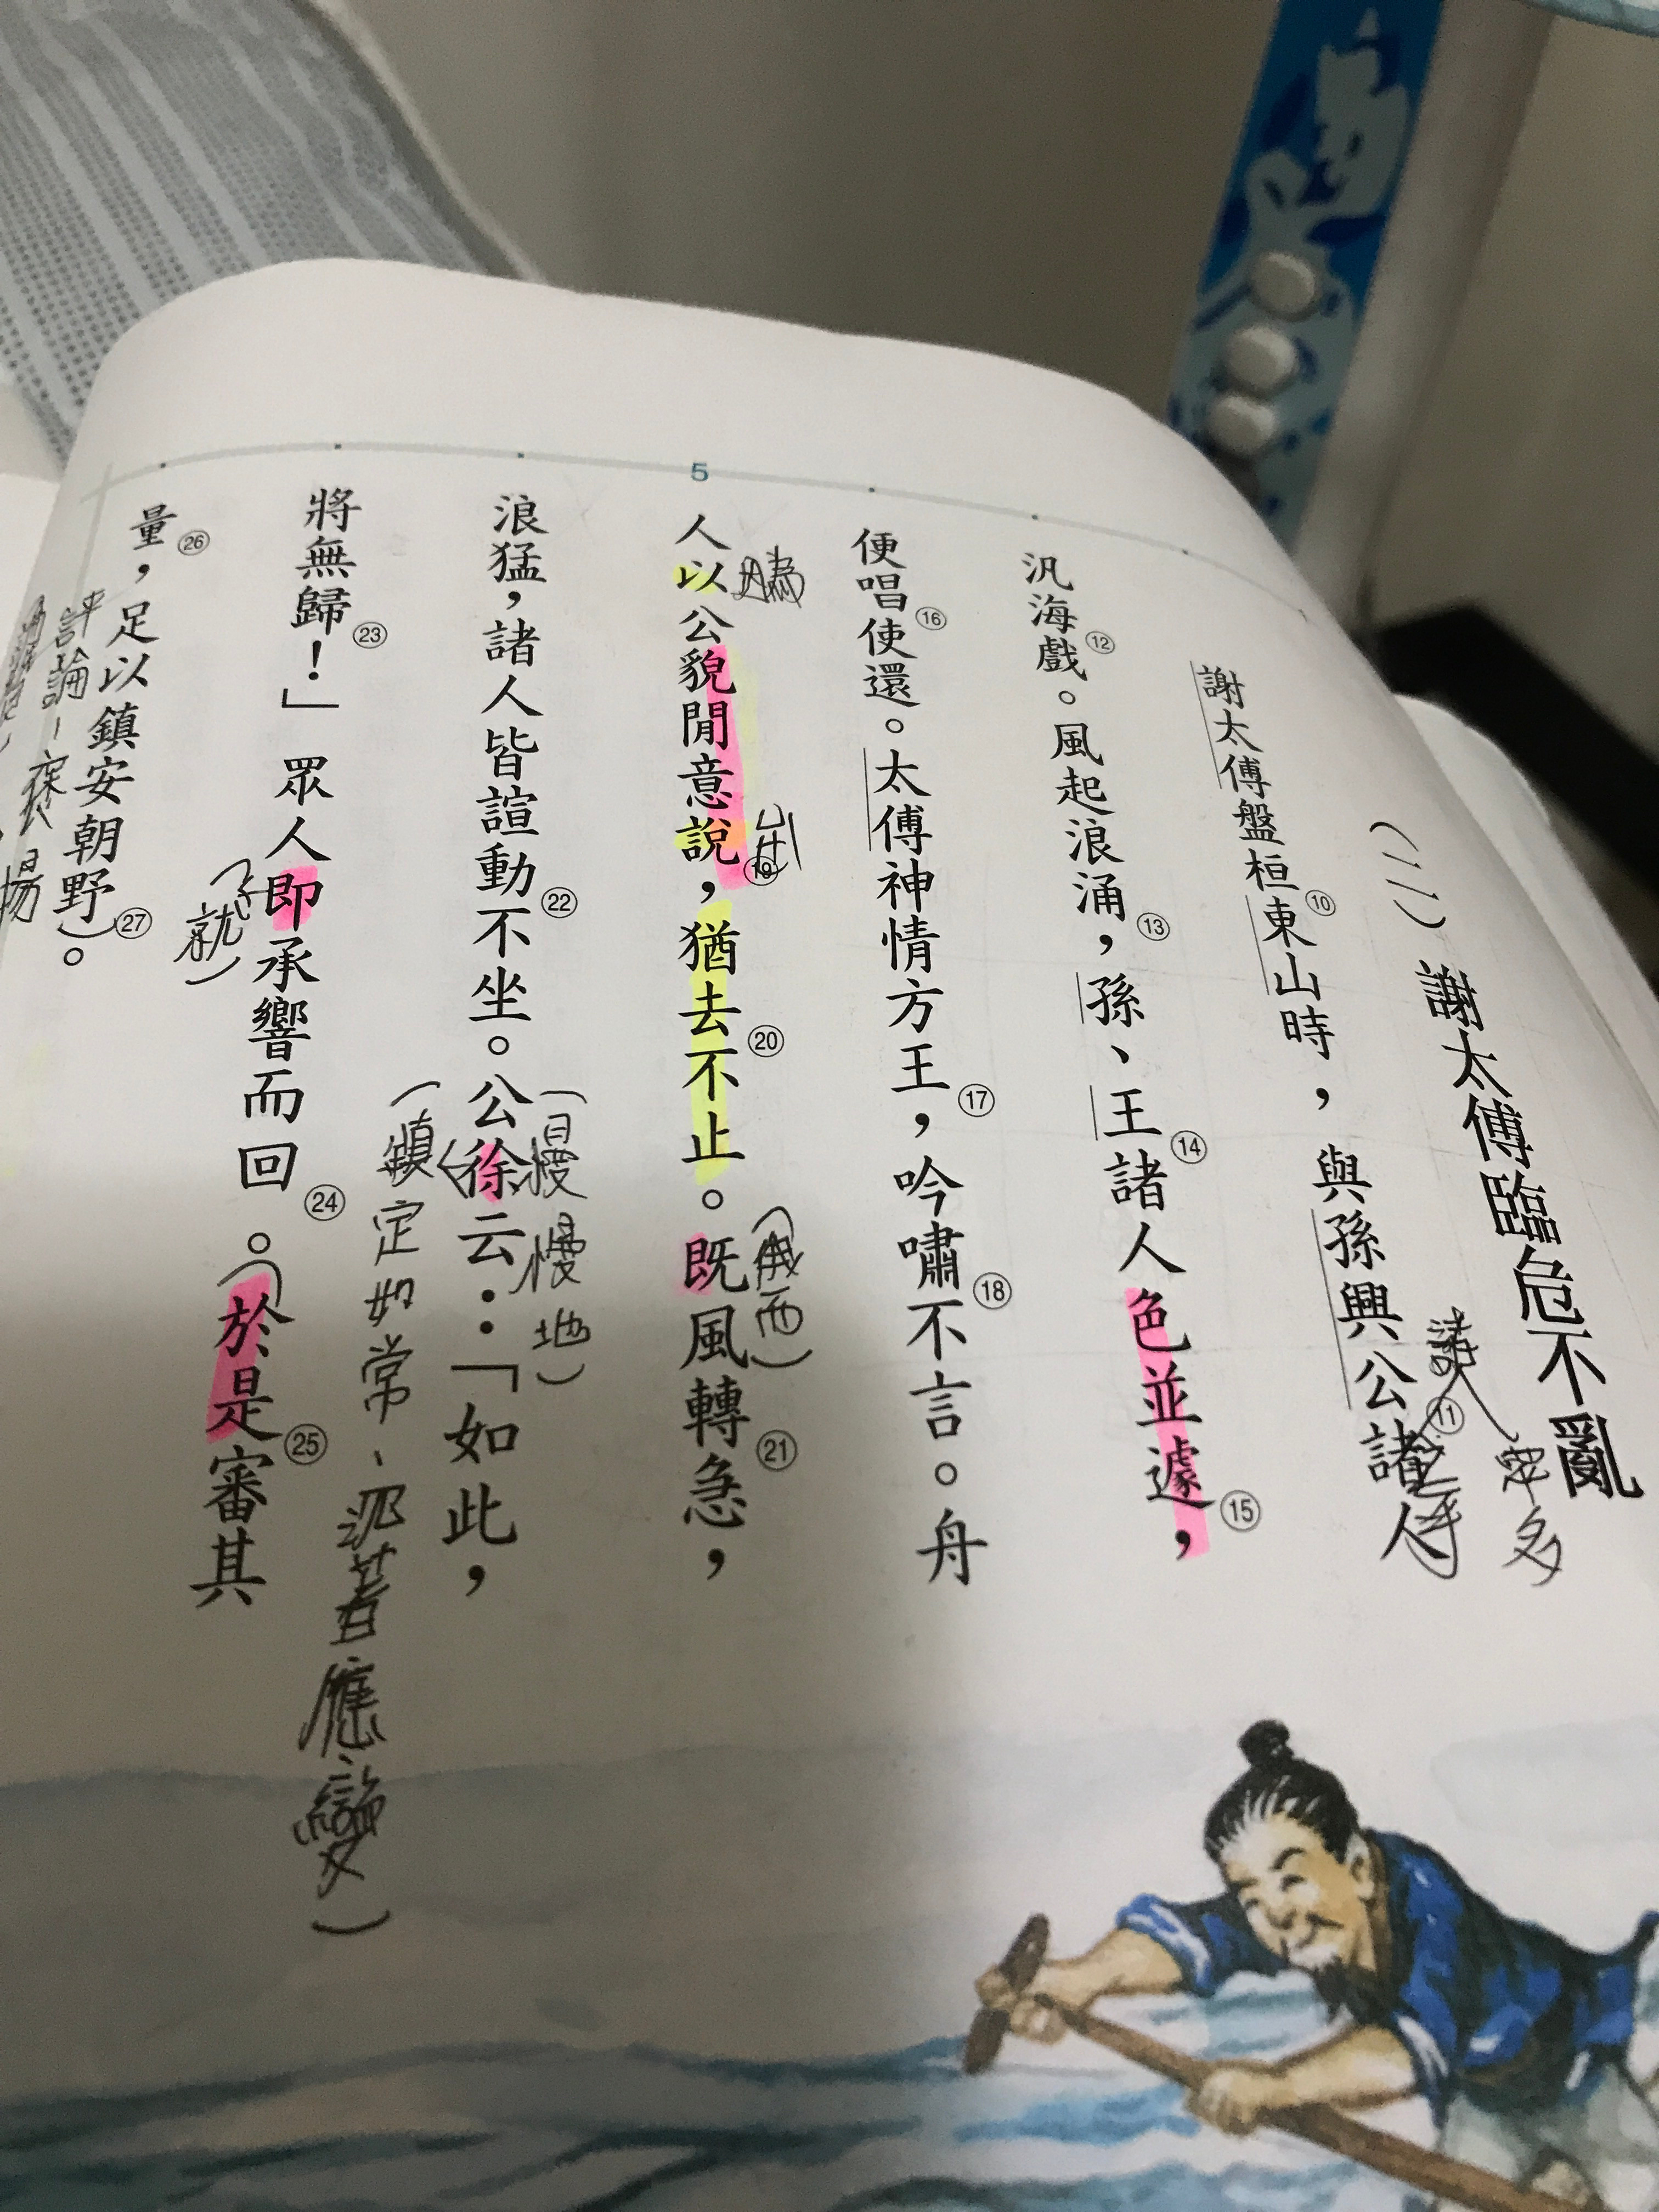 (二)謝太傅臨危不亂
謝太傅盤桓⑩東山時，與孫興公⑪諸人
諸
眾多
汎海戲⑫。風起浪涌⑬，孫、王⑭諸人色並遽⑮，
便唱⑯使還。太傅神情方王⑰，吟嘯⑱不言。舟
5
人以公貌閒意說⑲，猶去⑳不止。既風轉急㉑，
因為
浪猛，諸人皆諠動㉒不坐。公徐云：「如此，
(慢慢地)
(鎮定如常、沉著應變)
將無歸㉓！」眾人即承響而回㉔。(於是㉕審其
(就)
量㉖，足以鎮安朝野)㉗。
評論-褒揚